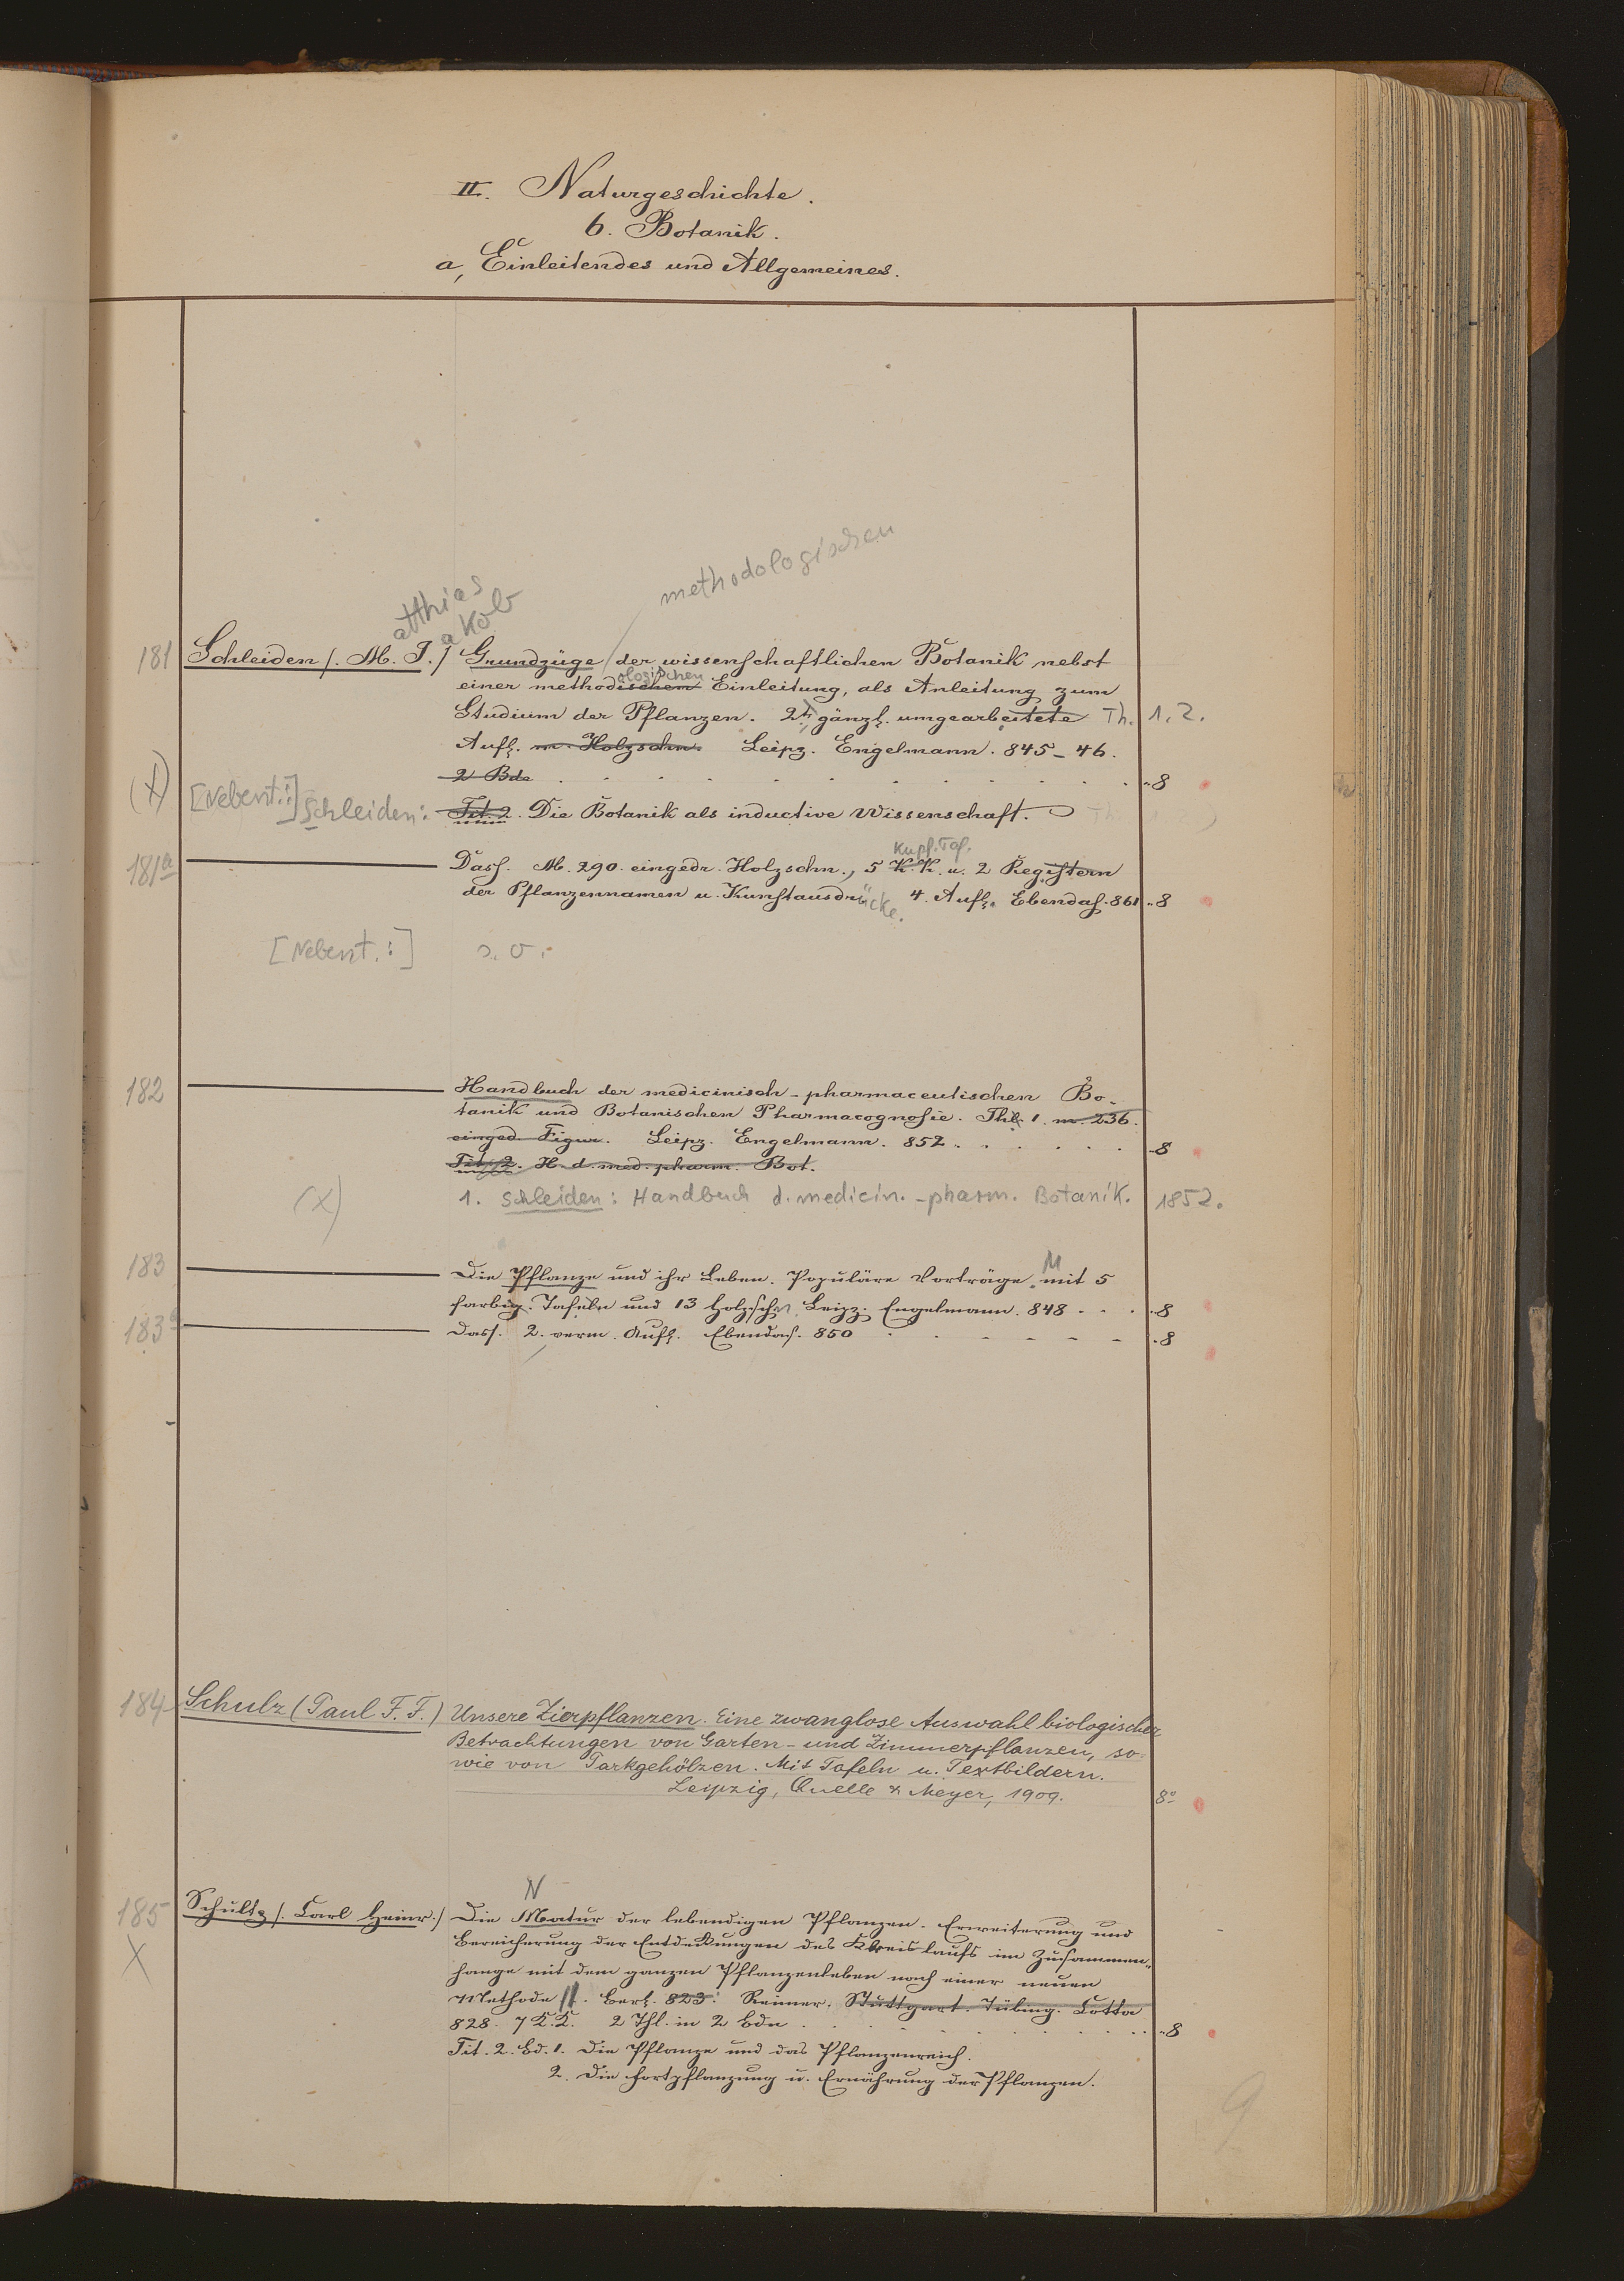 II. Naturgeschichte.
6. Botanik.
a, Einleitendes und Allgemeines.
methodologischen
atthias
akob
181 Schleiden /. M. J./ Grundzüge der wissenschaftlichen Botanik nebst
ologischen
einer methodischen Einleitung, als Anleitung zum
Studium der Pflanzen. 2te gänzl. umgearbeitete Th. 1.2.
Aufl. m. Holzschn. Leipz. Engelmann. 845-46.
2 Bde - 8
(X) [Nebent.:] Schleiden: Tit. 2. Die Botanik als inductive Wissenschaft.
Kupf. Taf.
181a Dass. M. 290. eingedr. Holzschn., 5 K.K. u. 2 Registern
der Pflanzennamen u. Kunstausdrücke. 4. Aufl. Ebendas. 861 - 8
[Nebent.:] s. o.
182 Handbuch der medicinisch-pharmaceutischen Bo-
tanik und Botanischen Pharmacognosie. Thl. 1. m. 236.
einged. Figur. Leipz. Engelmann. 852. - 8
Tit. 2. H. d. med. pharm. Bot.
(X) 1. Schleiden: Handbuch d. medicin.-pharm. Botanik. 1852.
M
183 Die Pflanze und ihr Leben. Populäre Vorträge. mit 5
farbig. Tafeln und 13 Holzschn. Leipz. Engelmann. 848 - 8
183a Dass. 2. verm. Aufl. Ebendas. 850 - 8
184 Schulz (Paul F. F.) Unsere Zierpflanzen. Eine zwanglose Auswahl biologischer
Betrachtungen von Garten- und Zimmerpflanzen, so-
wie von Parkgehölzen. Mit Tafeln u. Textbildern.
Leipzig, Quelle & Meyer, 1909. 8°
N
185 Schultz /. Carl Heinr./ Die Natur der lebendigen Pflanzen. Erweiterung und
X Bereicherung der Entdeckungen des Kreislaufs im Zusammen-
hange mit dem ganzen Pflanzenleben nach einer neuen
Methode. Berl. 823. Reimer. Stuttgart. Tübing. Cotta
828. 7 K.K. 2 Thl. in 2 Bdn - 8
Tit. 2. Bd. 1. Die Pflanze und das Pflanzenreich.
2. Die Fortpflanzung u. Ernährung der Pflanzen.
9